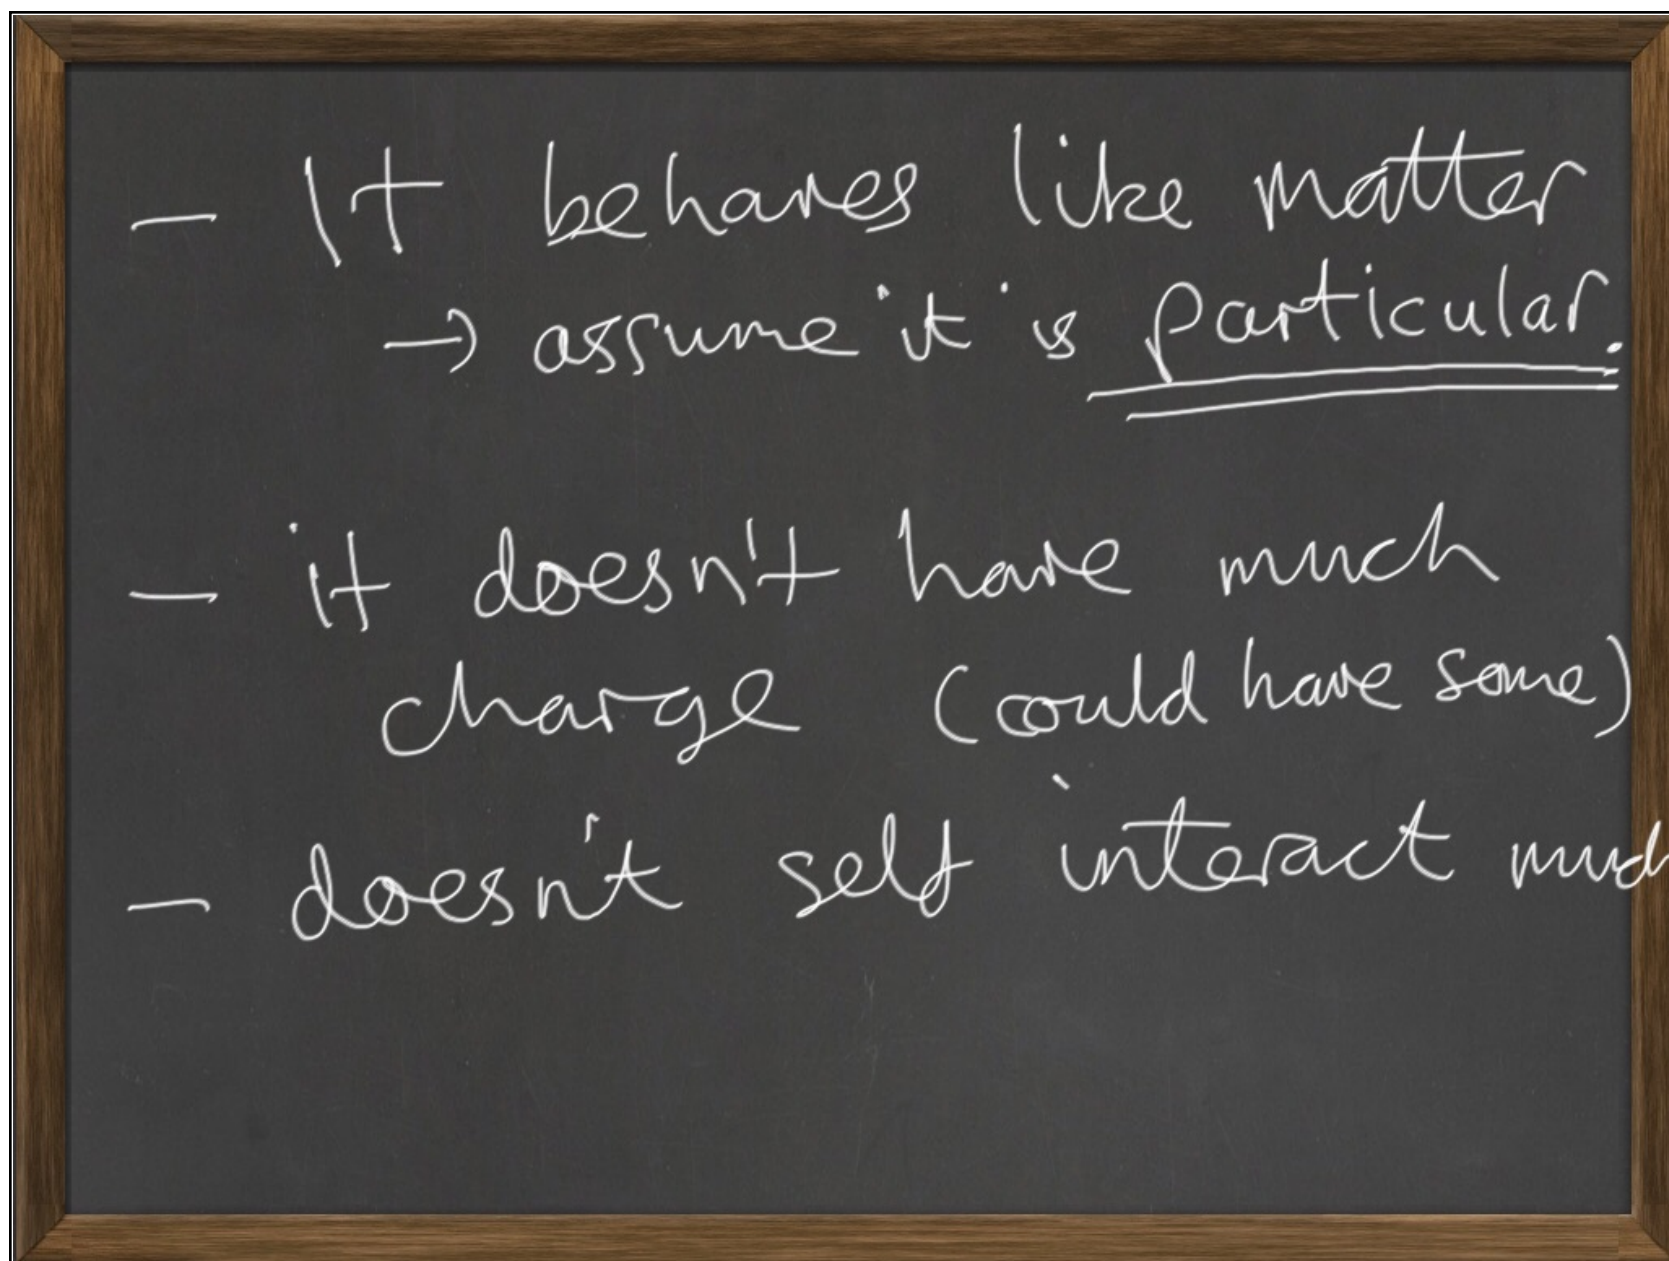 - It behaves like matter
→ assume it is particular.
- it doesn't have much
charge (could have some)
- doesn't self interact much